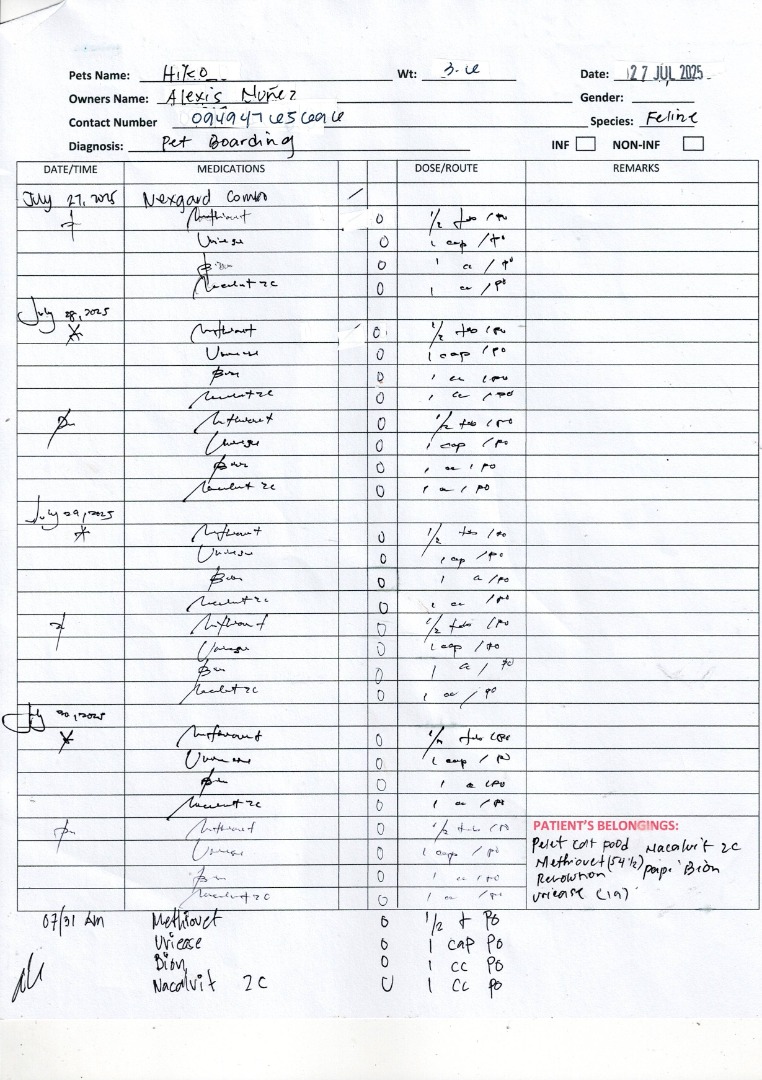 Pets Name: Hiko Wt: Date: 27 JUL 2025
Owners Name: Alexis Muñez Gender:
Contact Number Species: Feline
Diagnosis: Pet Boarding INF NON-INF
DATE/TIME MEDICATIONS DOSE/ROUTE REMARKS
July 27, 2025 Nexgard Combo
Methiovet 0 1/2 tab / PO
Uriease 0 1 cap / PO
Bion 0 1 cc / PO
Nacalvit 2C 0 1 cc / PO
July 28, 2025
Methiovet 0 1/2 tab / PO
Uriease 0 1 cap / PO
Bion 0 1 cc / PO
Nacalvit 2C 0 1 cc / PO
Methiovet 0 1/2 tab / PO
Uriease 0 1 cap / PO
Bion 0 1 cc / PO
Nacalvit 2C 0 1 cc / PO
July 29, 2025
Methiovet 0 1/2 tab / PO
Uriease 0 1 cap / PO
Bion 0 1 cc / PO
Nacalvit 2C 0 1 cc / PO
Methiovet 0 1/2 tab / PO
Uriease 0 1 cap / PO
Bion 0 1 cc / PO
Nacalvit 2C 0 1 cc / PO
July 30, 2025
Methiovet 0 1/2 tab / PO
Uriease 0 1 cap / PO
Bion 0 1 cc / PO
Nacalvit 2C 0 1 cc / PO
Methiovet 0 1/2 tab / PO
Uriease 0 1 cap / PO
Bion 0 1 cc / PO
Nacalvit 2C 0 1 cc / PO
PATIENT'S BELONGINGS:
Pelet cat food Nacalvit 2C
Methiovet (54 1/2) Bion
Revolution
Uriease (19)
07/31 Am Methiovet 0 1/2 t PO
Uriease 0 1 cap PO
Bion 0 1 cc PO
Nacalvit 2C 0 1 cc PO